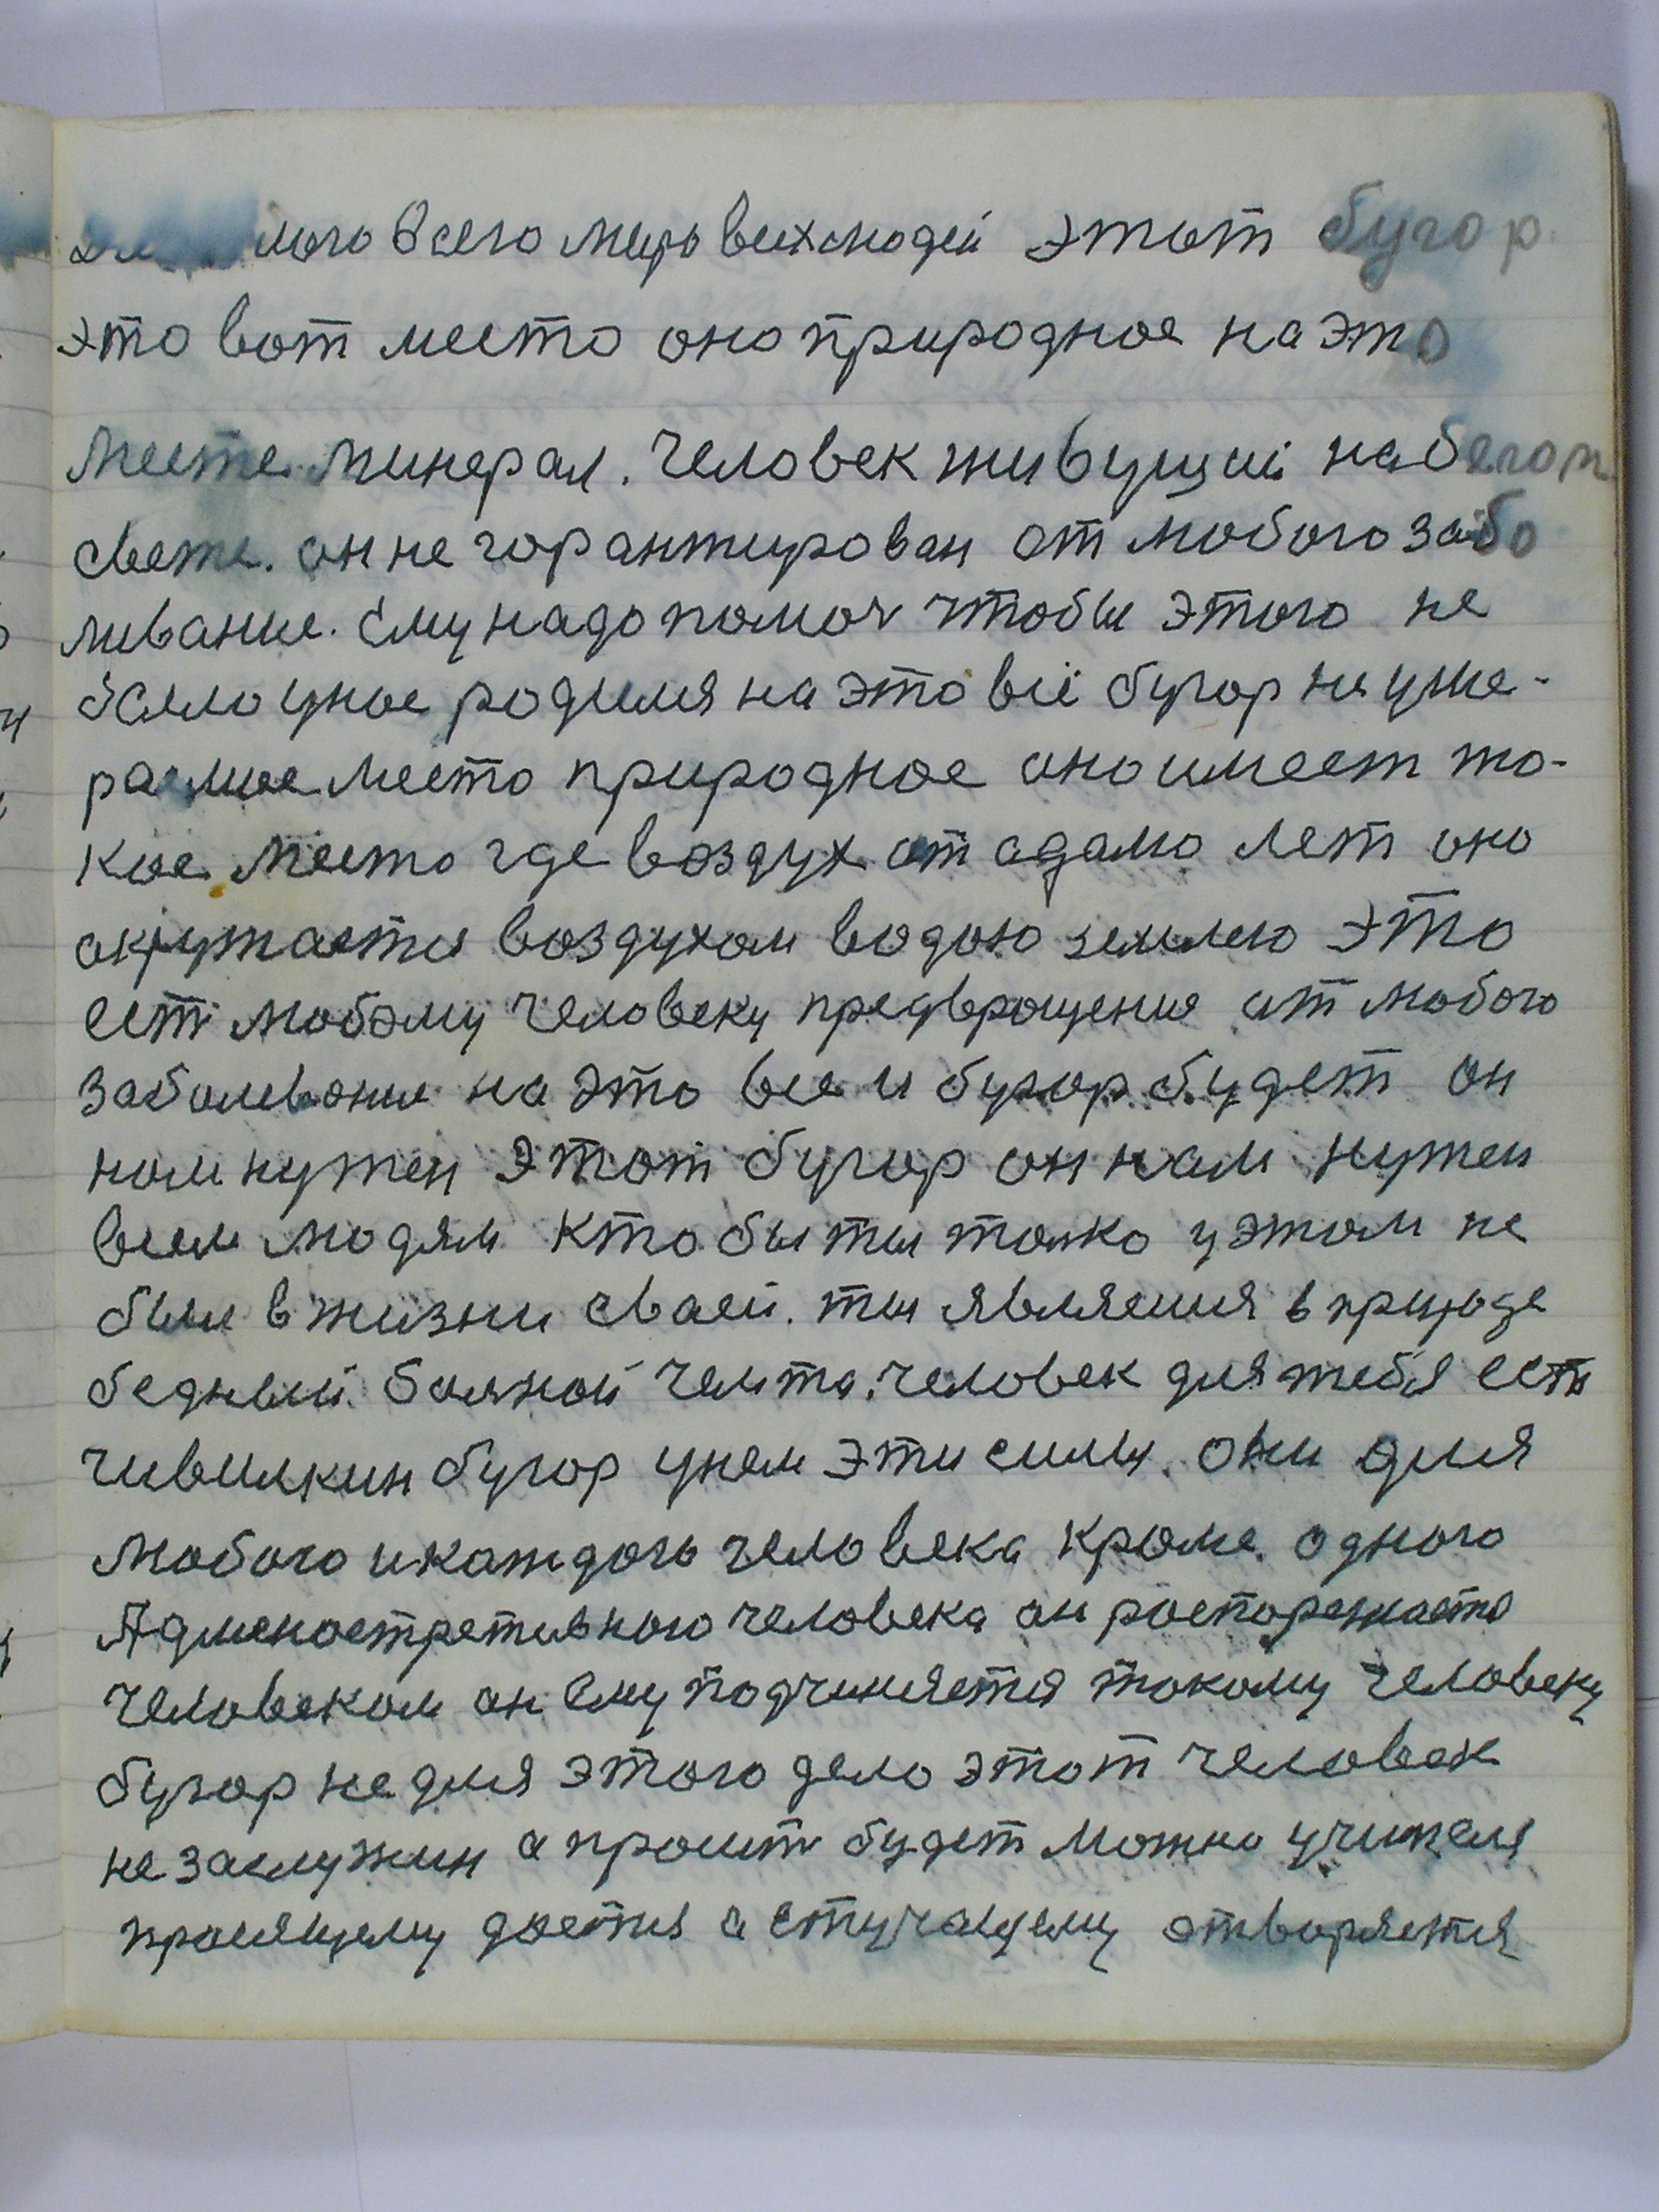 мого всего мира всих людей этот бугор
это вот место оно природное на это
месте минерал. Человек живущий на белом
свете. он не горантирован от любого забо
ливание. Ему надо помоч чтобы этого не
было у нас родился на это всё бугор не уме-
раемое место природное оно имеет та-
кое место где воздух от адама лет оно
окружается воздухом водою землею это
ест любому человеку предврощения от любого
заболевание на это все и бугор будет он
ном нужен этот бугор он нам нужен
всем людям кто бы ты толко у этом не
был в жизни своей. ты являешся в природе
бедный болной чемто. человек для тебя есть
чивилкин бугор у нем эти силы. они для
любого и каждого человека кроме одного
Админостретивного человека он роспорежаето
человеком он ему подчиняется токому человеку
бугор не для этого дело этот человек
не заслужил а просит будет можно учителя
просящему дается а стучащему отворяется